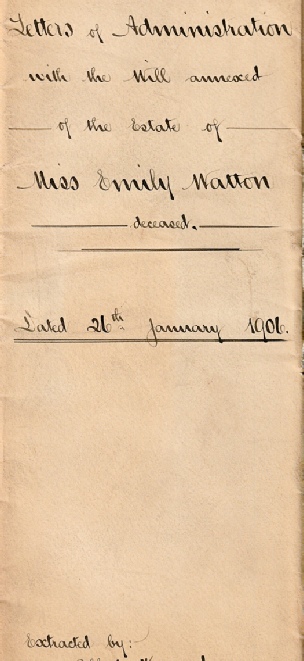 Letters of Administration
with the Will annexed
of the Estate of
Miss Emily Watton
deceased.
Dated 26th January 1906.
Extracted by: